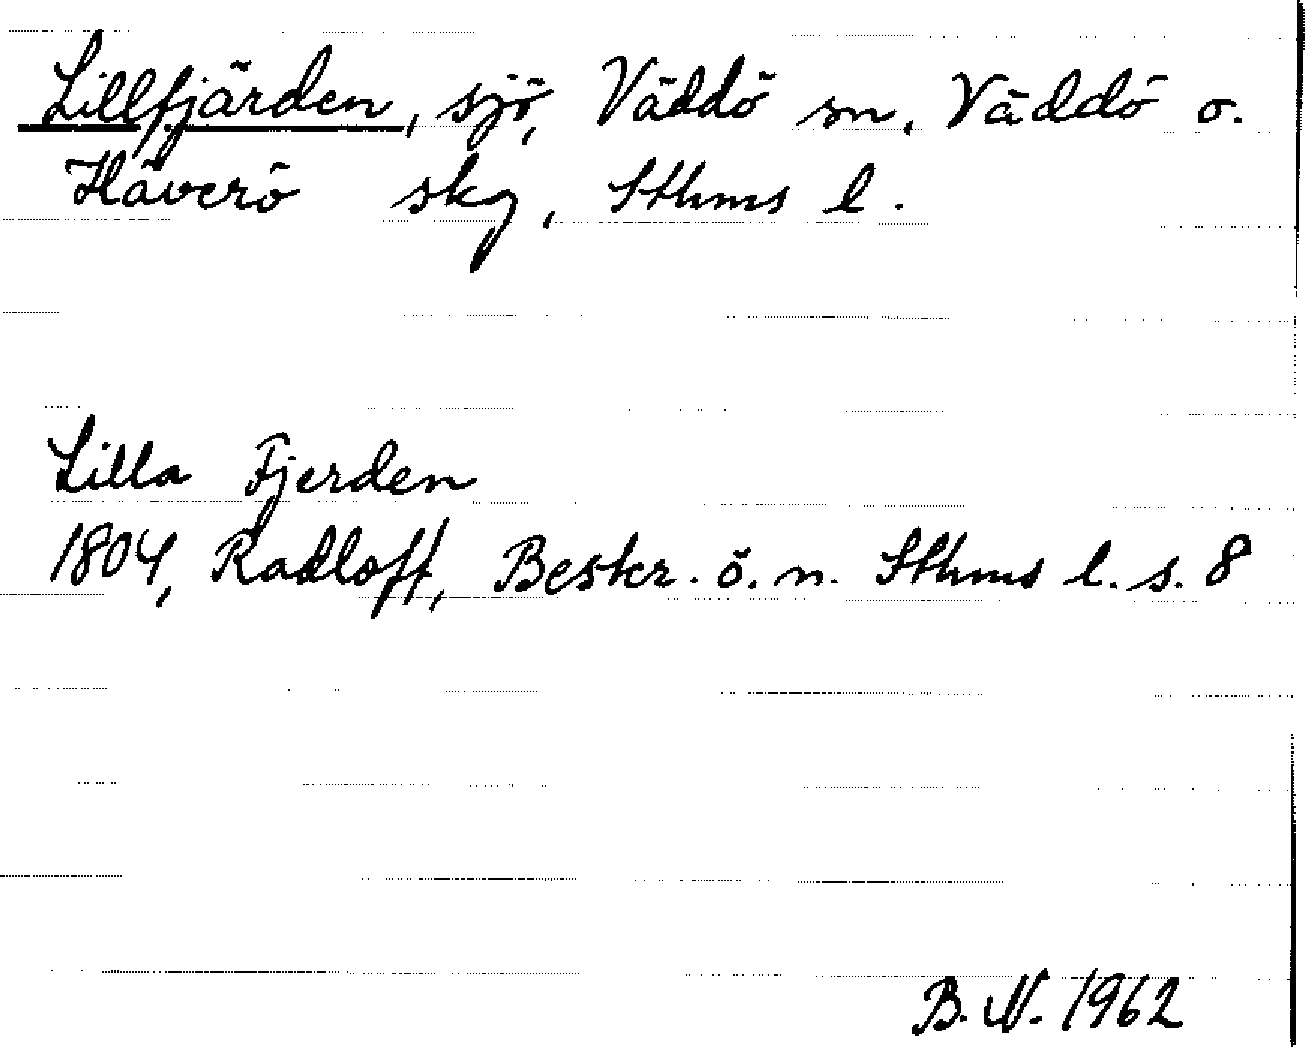 Lillfjärden, sjö, Väddö sn, Väddö o.
Häverö skg, Sthms l.
Lilla Fjerden
1804, Radloff, Beskr. ö. n. Sthms l. s. 8
B. N. 1962